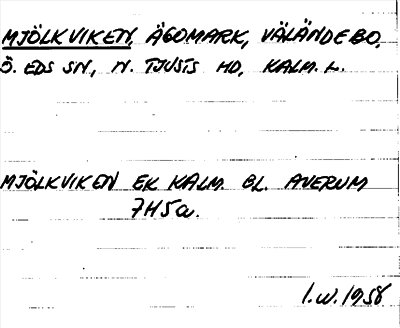 MJÖLKVIKEN, ÄGOMARK, VÄLÄNDEBO,
Ö. EDS SN, N. TJUSTS HD, KALM. L.
MJÖLKVIKEN EK KALM. BL. AVERUM
7H5a.
I.W. 1958